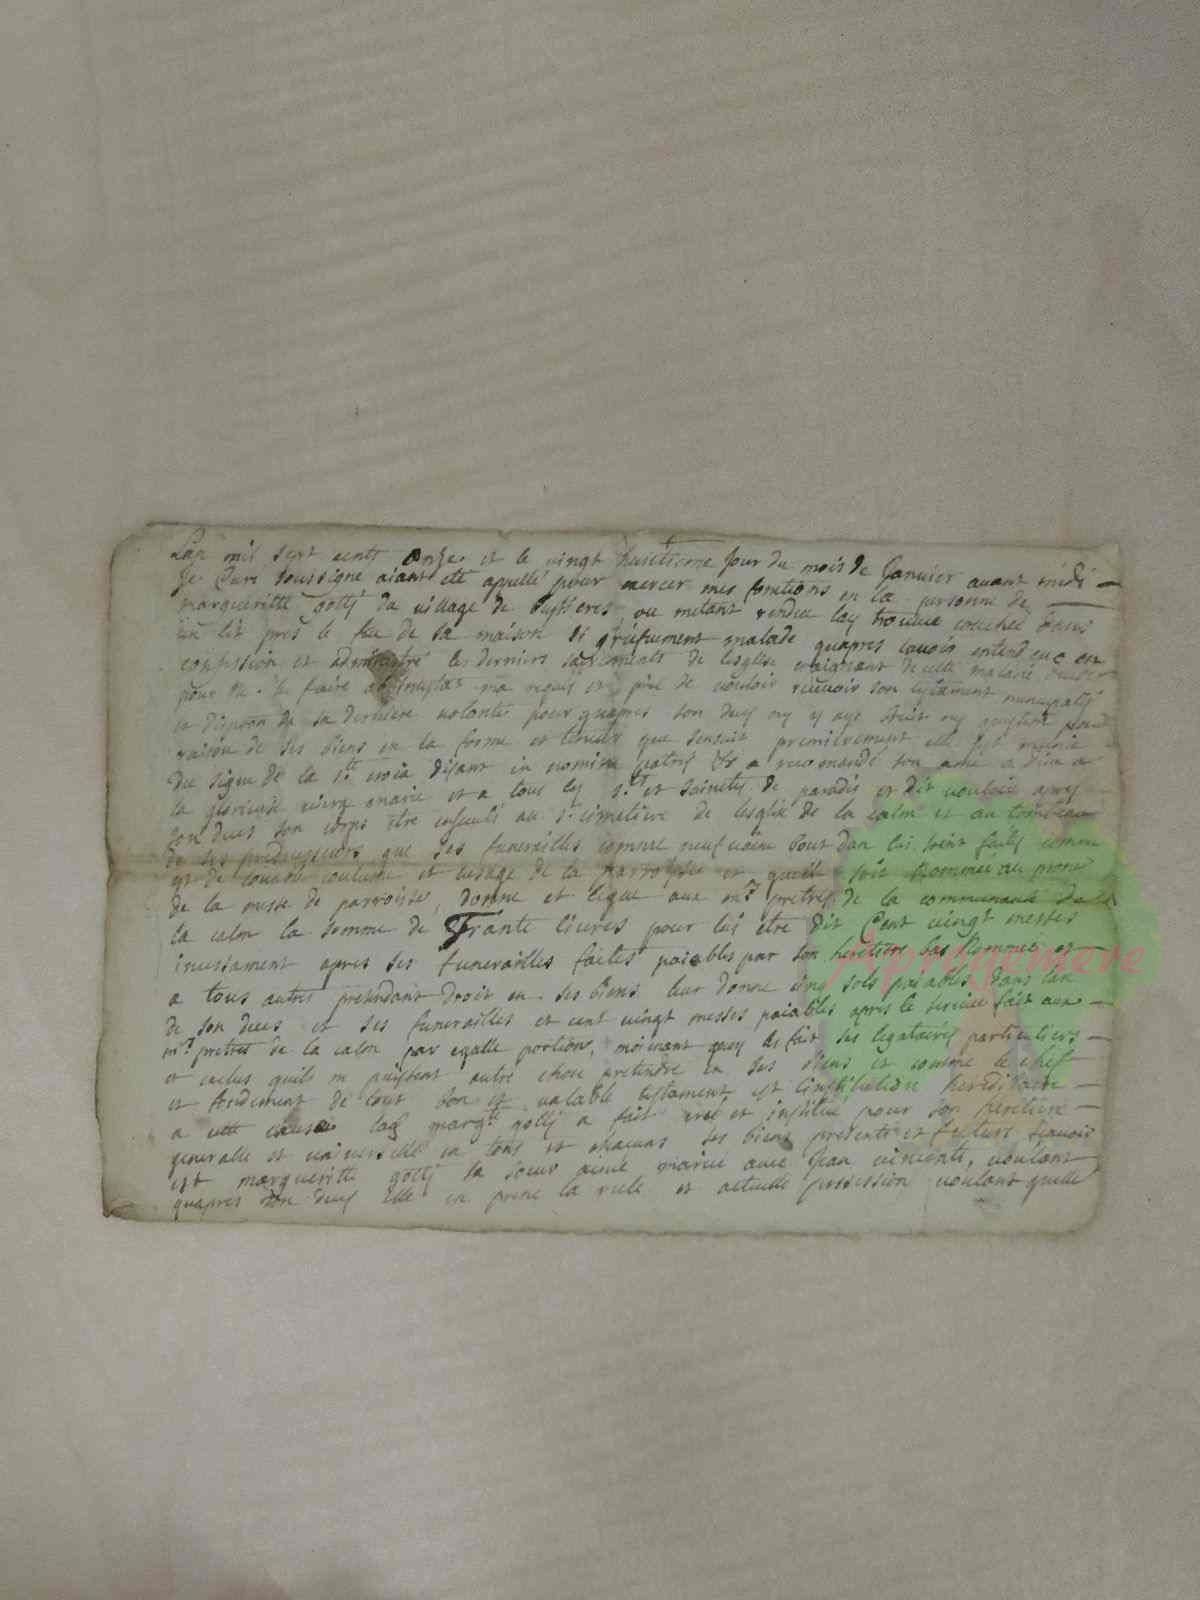 Lan mil sept cents onze et le vingt huictieme jour du mois de Janvier avant midi
Je Curé soussigné aiant eté appellé pour exercer mes fonctions en la personne de
margueritte gotty du village de ou metant rendeu lay trouvée couchée dans
un lit pres le feu de sa maison et griefvement malade quapres lavoir entendeue en
confession et administré les derniers sacrements de leglise craignant de cette maladie
pour ce faire ma requis et prié de vouloir recevoir son testament nuncupatif
et dispoon de sa derniere volonté pour quapres son deces ny y aye
raison de ses biens en la forme et teneur que sensuit premierement elle sest munie
du signe de la ste croix disant in nomine patris &c a recomandé son ame a Dieu a
la glorieuse vierge marie et a tous les sts et saintes de paradis et dit vouloir apres
son deces son corps etre enseveli au st cimetiere de leglise de la calm et au tombeau
de ses predecesseurs que ses funerailles comme neufvaine bout dan lui soint faits comme
est de coutume et usage de la parroisse et quelle soit nommée au prone
de la messe de parroisse, donne et legue aux mrs pretres de la communauté de
la calm la somme de Trante livres pour lui etre dit Cent vingt messes
incessament apres ses funerailles faites paiables par son heritiere bas nommée et
a tous autres pretendant droit en ses biens leur donne cinq sols paiables dans lan
de son deces et ses funerailles et cent vingt messes paiables apres le service fait aux
mrs pretres de la calm par egalle portion, moienant quoy les fait ses legataires particuliers
et exclus quils ne puissent autre chose pretendre en ses biens et comme le chef
et fondement de tout bon et valable testament est linstitution hereditaire
a cette cause lad margte gotty a fait creé et institue pour son heritiere
generalle et universelle en tous et chacuns ses biens presents et futurs scavoir
est margueritte gotty sa soeur ainée mariée avec Jean vincents, voulant
quapres son deces elle en prene la reele et actuelle possession voulant quelle
#progenere